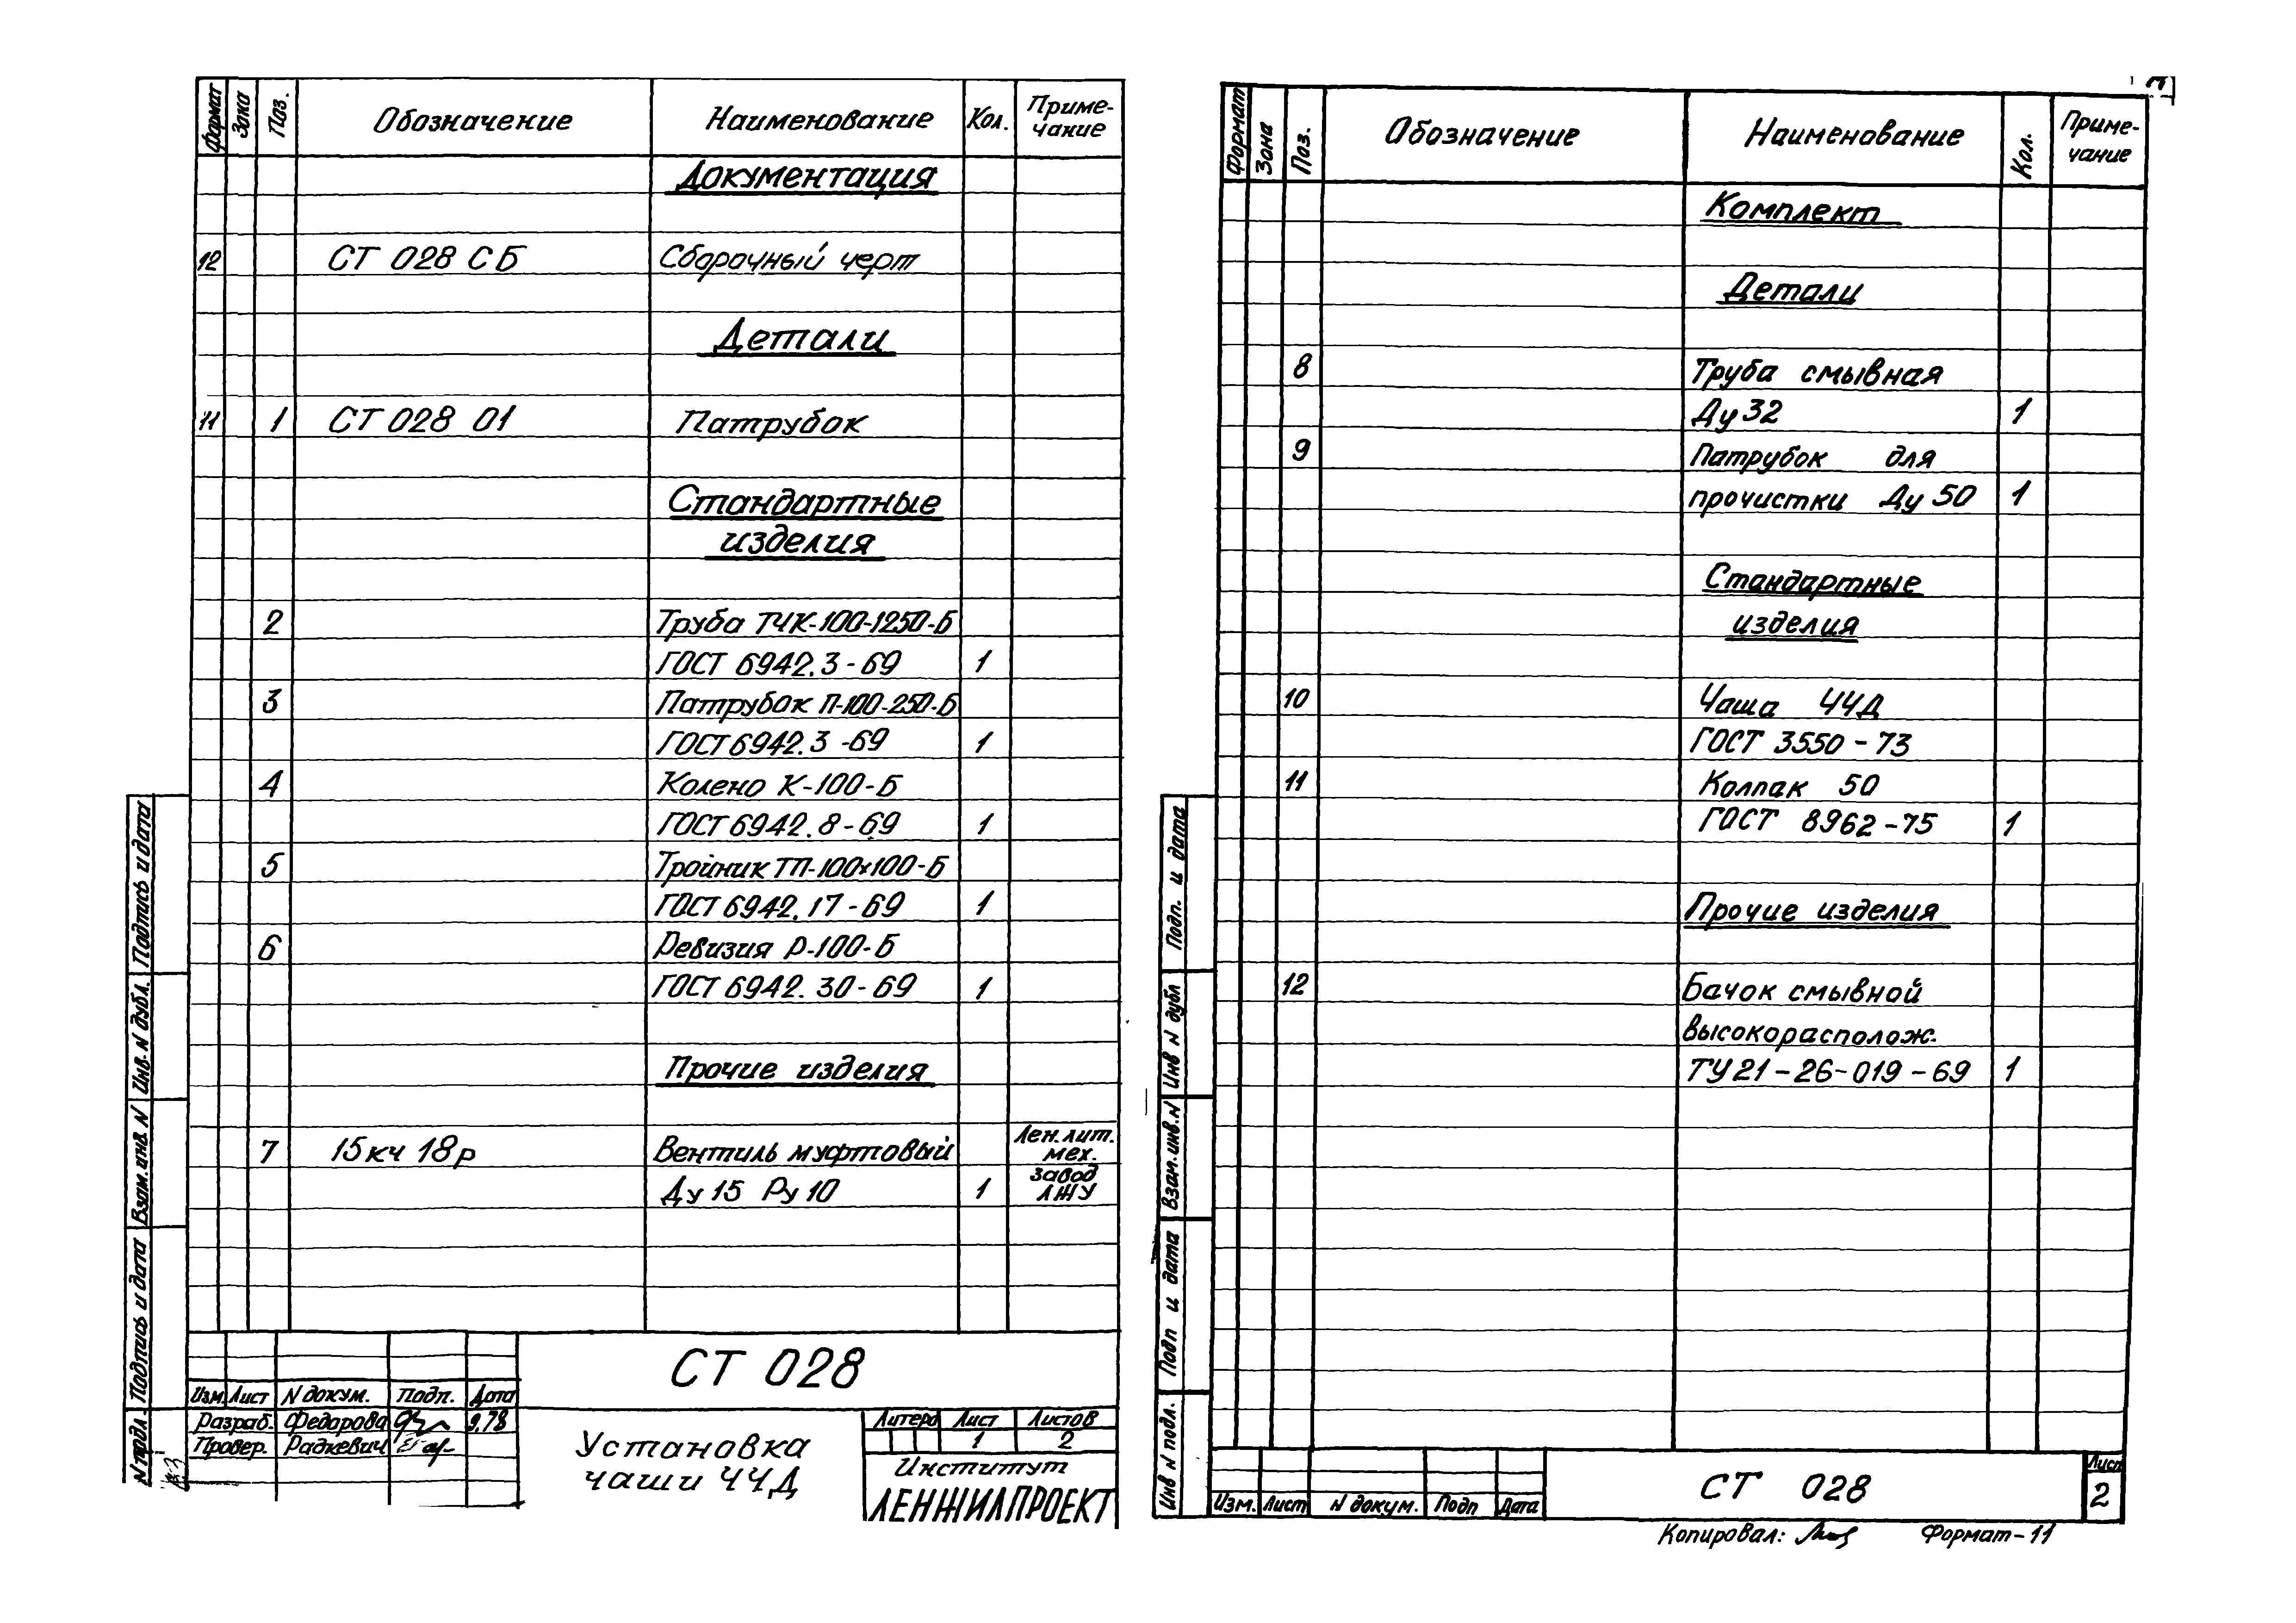 Формат Зона Поз. Обозначение Наименование Кол. Приме-
чание
Документация
12 СТ 028 СБ Сборочный черт
Детали
11 1 СТ 028 01 Патрубок
Стандартные
изделия
2 Труба ТЧК-100-1250-Б
ГОСТ 6942.3-69 1
3 Патрубок П-100-250-Б
ГОСТ 6942.3-69 1
4 Колено К-100-Б
ГОСТ 6942.8-69 1
5 Тройник ТП-100х100-Б
ГОСТ 6942.17-69 1
6 Ревизия Р-100-Б
ГОСТ 6942.30-69 1
Прочие изделия
7 15кч 18р Вентиль муфтовый
Ду 15 Ру 10 1
Лен.лит.
мех.
завод
ЛЖУ
Подпись и дата
Инв. N дубл.
Взам. инв. N
Подпись и дата
N подл.
СТ 028
Изм. Лист N докум. Подп. Дата
Разраб. Федарова 9.78
Провер. Радкевич
Установка
чаши ЧЧД
Литера Лист Листов
1 2
Институт
ЛЕНЖИЛПРОЕКТ
Формат Зона Поз. Обозначение Наименование Кол. Приме-
чание
Комплект
Детали
8 Труба смывная
Ду 32 1
9 Патрубок для
прочистки Ду 50 1
Стандартные
изделия
10 Чаша ЧЧД
ГОСТ 3550-73
11 Колпак 50
ГОСТ 8962-75 1
Прочие изделия
12 Бачок смывной
высокорасполож.
ТУ 21-26-019-69 1
Подп. и дата
Инв N дубл
Взам. инв. N
Подп и дата
Инв N подл.
Изм. Лист N докум. Подп Дата
СТ 028
Лист
2
Копировал: Формат-11